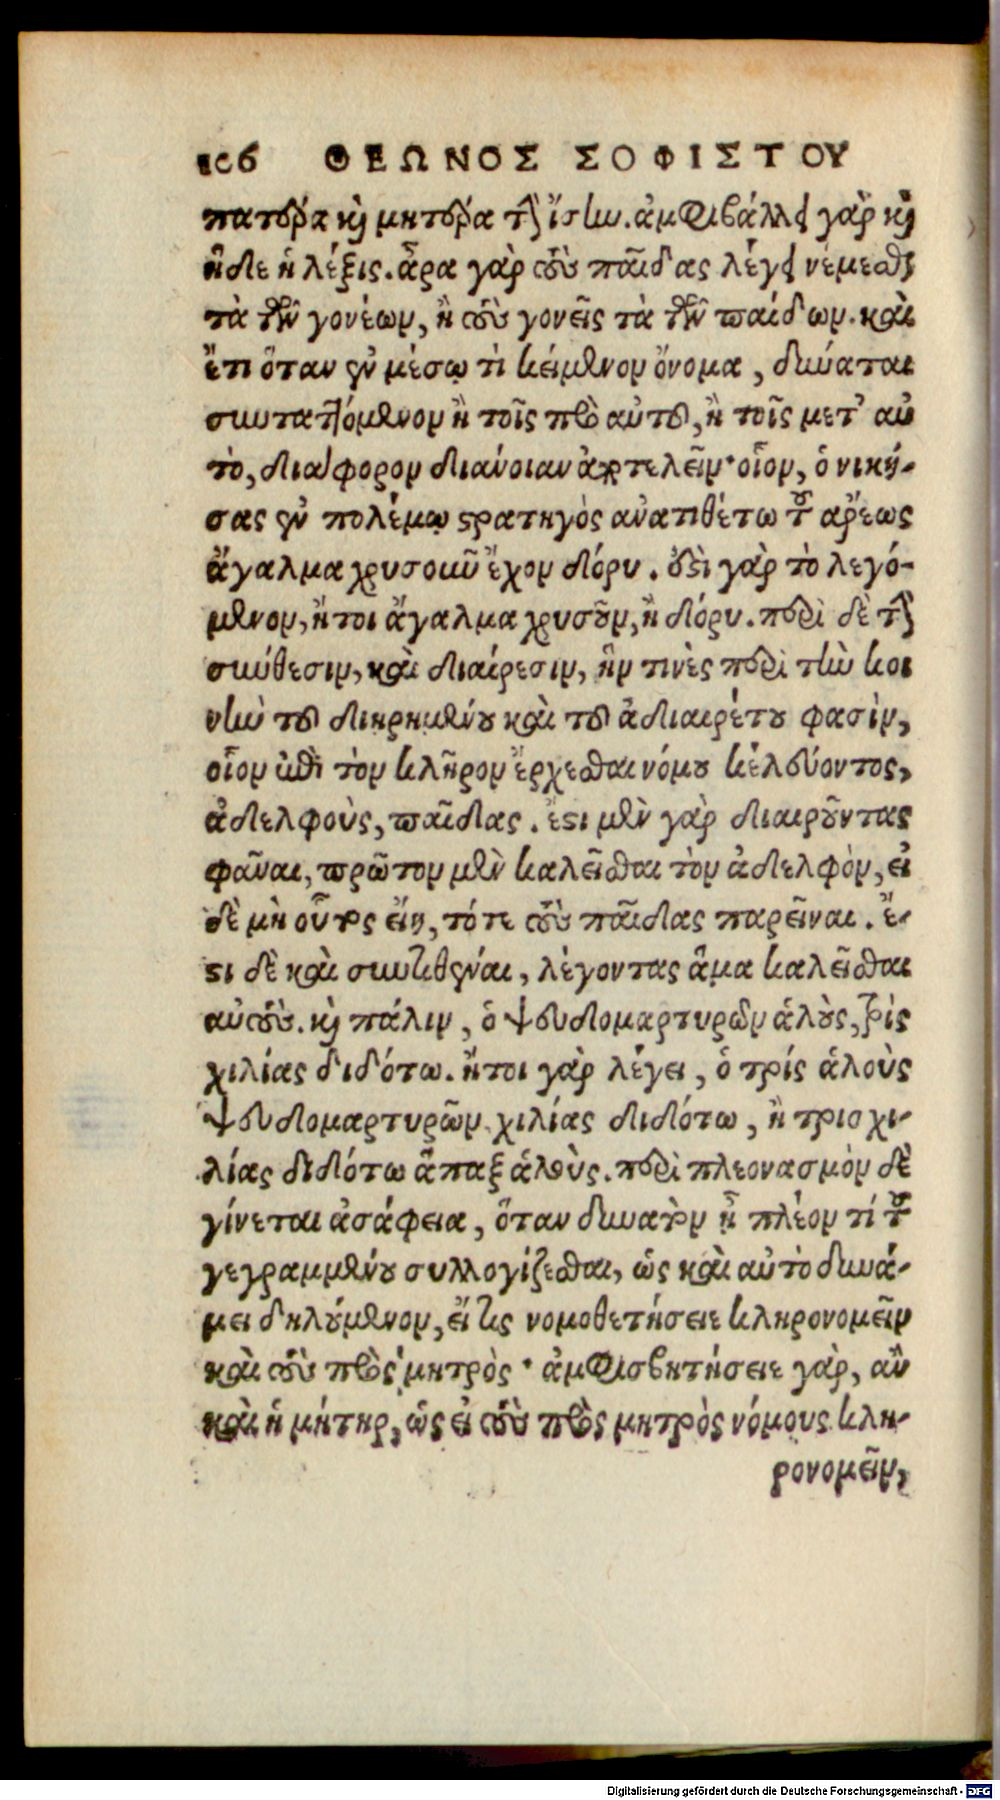 106 ΘΕΩΝΟΣ ΣΟΦΙΣΤΟΥ
πατέρα καὶ μητέρα τὴν ἴσην. ἀμφιβάλλει γὰρ καὶ
ἥδε ἡ λέξις. ἆρα γὰρ τοὺς παῖδας λέγει νέμεσθαι
τὰ τῶν γονέων, ἢ τοὺς γονεῖς τὰ τῶν παίδων. καὶ
ἔτι ὅταν ἐν μέσῳ τὶ κείμενον ὄνομα, δύναται
συνταττόμενον ἢ τοῖς πρὸ αὐτοῦ, ἢ τοῖς μετ' αὐ
τὸ, διάφορον διάνοιαν ἀποτελεῖν· οἷον, ὁ νική-
σας ἐν πολέμῳ στρατηγὸς ἀνατιθέτω τοῦ ἄρεως
ἄγαλμα χρυσοῦν ἔχον δόρυ. ὅδει γὰρ τὸ λεγό-
μενον, ἤτοι ἄγαλμα χρυσοῦν, ἢ δόρυ. περὶ δὲ τὴν
σύνθεσιν, καὶ διαίρεσιν, ἥν τινὲς περὶ τὴν κοι
νὴν τοῦ διῃρημένου καὶ τοῦ ἀδιαιρέτου φασὶν,
οἷον ἐπὶ τὸν κλῆρον ἔρχεσθαι νόμου κελεύοντος,
ἀδελφοὺς, παῖδας. ἔστι μὲν γὰρ διαιροῦντας
φᾶναι, πρῶτον μὲν καλεῖσθαι τὸν ἀδελφὸν, εἰ
δὲ μὴ οὗτος εἴη, τότε τοὺς παῖδας παρεῖναι. ἔ-
στι δὲ καὶ συντιθέναι, λέγοντας ἅμα καλεῖσθαι
αὐτούς. καὶ πάλιν, ὁ ψευδομαρτυρῶν ἁλοὺς, τρὶς
χιλίας διδότω. ἤτοι γὰρ λέγει, ὁ τρίς ἁλοὺς
ψευδομαρτυρῶν χιλίας διδότω, ἢ τρισχι-
λίας διδότω ἅπαξ ἁλοὺς. περὶ πλεονασμὸν δὲ
γίνεται ἀσάφεια, ὅταν δυνατὸν ᾖ πλέον τί τοῦ
γεγραμμένου συλλογίζεσθαι, ὡς καὶ αὐτὸ δυνά-
μει δηλούμενον, εἴ τις νομοθετήσειε κληρονομεῖν
καὶ τοὺς πρὸς μητρὸς· ἀμφισβητήσειε γὰρ, ἂν
καὶ ἡ μήτηρ, ὡς εἰ τοὺς πρὸς μητρὸς νόμους κλη-
ρονομεῖν,
Digitalisierung gefördert durch die Deutsche Forschungsgemeinschaft - DFG